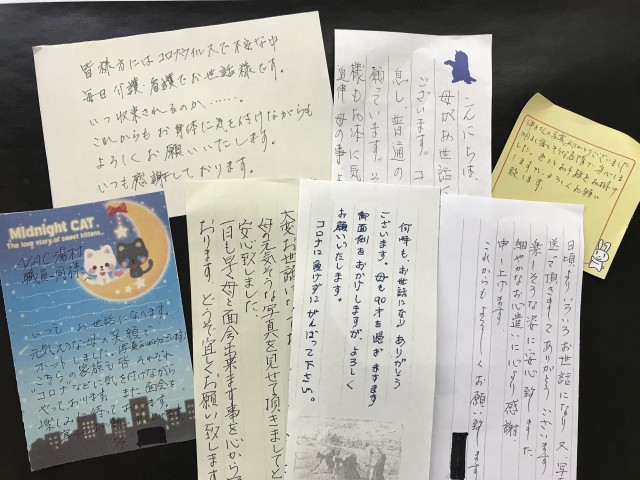 皆様方にはコロナウイルスで不安な中
毎日介護・看護でお世話様です。
いつ収束されるのか……。
これからもお身体に気を付けながらも
よろしくお願いいたします。
いつも感謝しております。
こんにちは、
母がお世話に
ございます。コ
息し、普通の
願っています。そ
様もお体に気
Midnight CAT
The love story of sweet kittens.
VAC湯村
職員ご同様
いつもお世話になります。
元気そうな母の笑顔で
ホットしました。
こちらの家族も皆それぞれ
コロナなどに気を付けながら
やっております。また面会を
楽しみに待っております。
大変お世話になって
母元気そうな写真を見せて頂きまして
安心致しました。
一日も早く母と面会出来ます事を心から
おります。どうぞ宜しくお願い致します
何時も、お世話になり ありがとう
ございます。母も90才を過ぎ ますます
御面倒をおかけしますが、よろしく
お願いいたします。
コロナに負けずにがんばって下さい。
日頃よりいろいろお世話になり 又、写真
送って頂きましてありがとうございます
楽しそうな姿に安心致しました。
細やかなお心遣いに心より感謝
申し上げます
これからもよろしくお願い致します